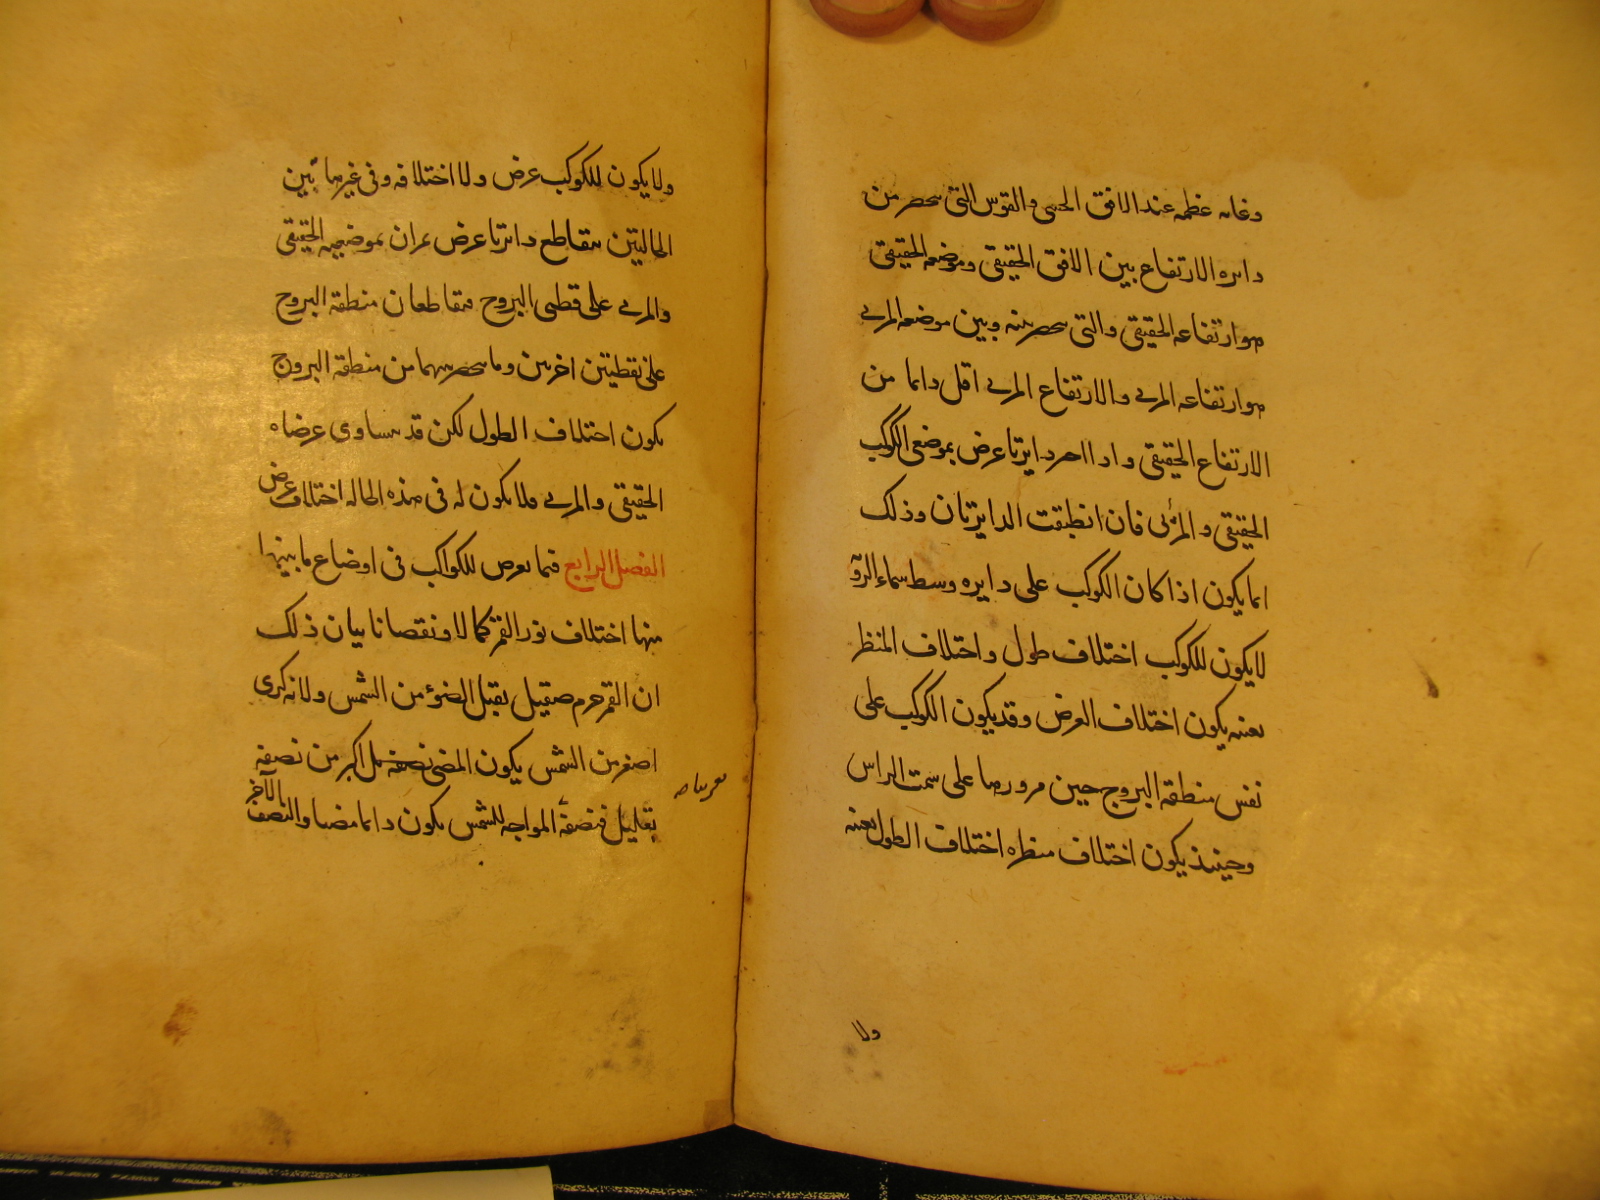 وغايه عظمه عند الافق الحسى والقوس التى ىىحصر من
دايره الارتفاع بين الافق الحقيقى وموضعه الحقيقى
هو ارتفاعه الحقيقى والتى ىىحصر منه وبين موضعه المرىى
هو ارتفاعه المرىى والارتفاع المرىى اقل دائما من
الارتفاع الحقيقى واذا اخرج دايرتا عرض بموضعى الكوكب
الحقيقى والمرئى فان انطبقت الدايرتان وذلك
انما يكون اذا كان الكوكب على دايره وسط سماء الرؤية
لا يكون للكوكب اختلاف طول واختلاف المنظر
بعينه يكون اختلاف العرض وقد يكون الكوكب على
نفس منطقة البروج حين مرورها على سمت الراس
وحينئذ يكون اختلاف منظره اختلاف الطول بعينه
ولا
ولا يكون للكوكب عرض ولا اختلافه وفى غير هاتين
الحاليتن يتقاطع دايرتا عرض يمران بموضعيه الحقيقى
والمرىى على قطبى البروج متقاطعان منطقة البروج
على نقطيتن اخرىين وما ىىحصر بينهما من منطقة البروج
يكون اختلاف الطول لكن قد يتساوى عرضاه
الحقيقى والمرىى فلا يكون له فى هذه الحاله اختلاف عرض
الفصل الرابع فيما يعرض للكواكب فى اوضاع ما بينها
منها اختلاف نور القمر كمالا ونقصانا بيان ذلك
ان القمر جرم صقيل يقبل الضوء من الشمس ولانه كرى
اصغر من الشمس يكون المضى نصفه بل اكبر من نصفه
بقليل فنصفه المواجه للشمس يكون دائما مضيا والنصف الآخر